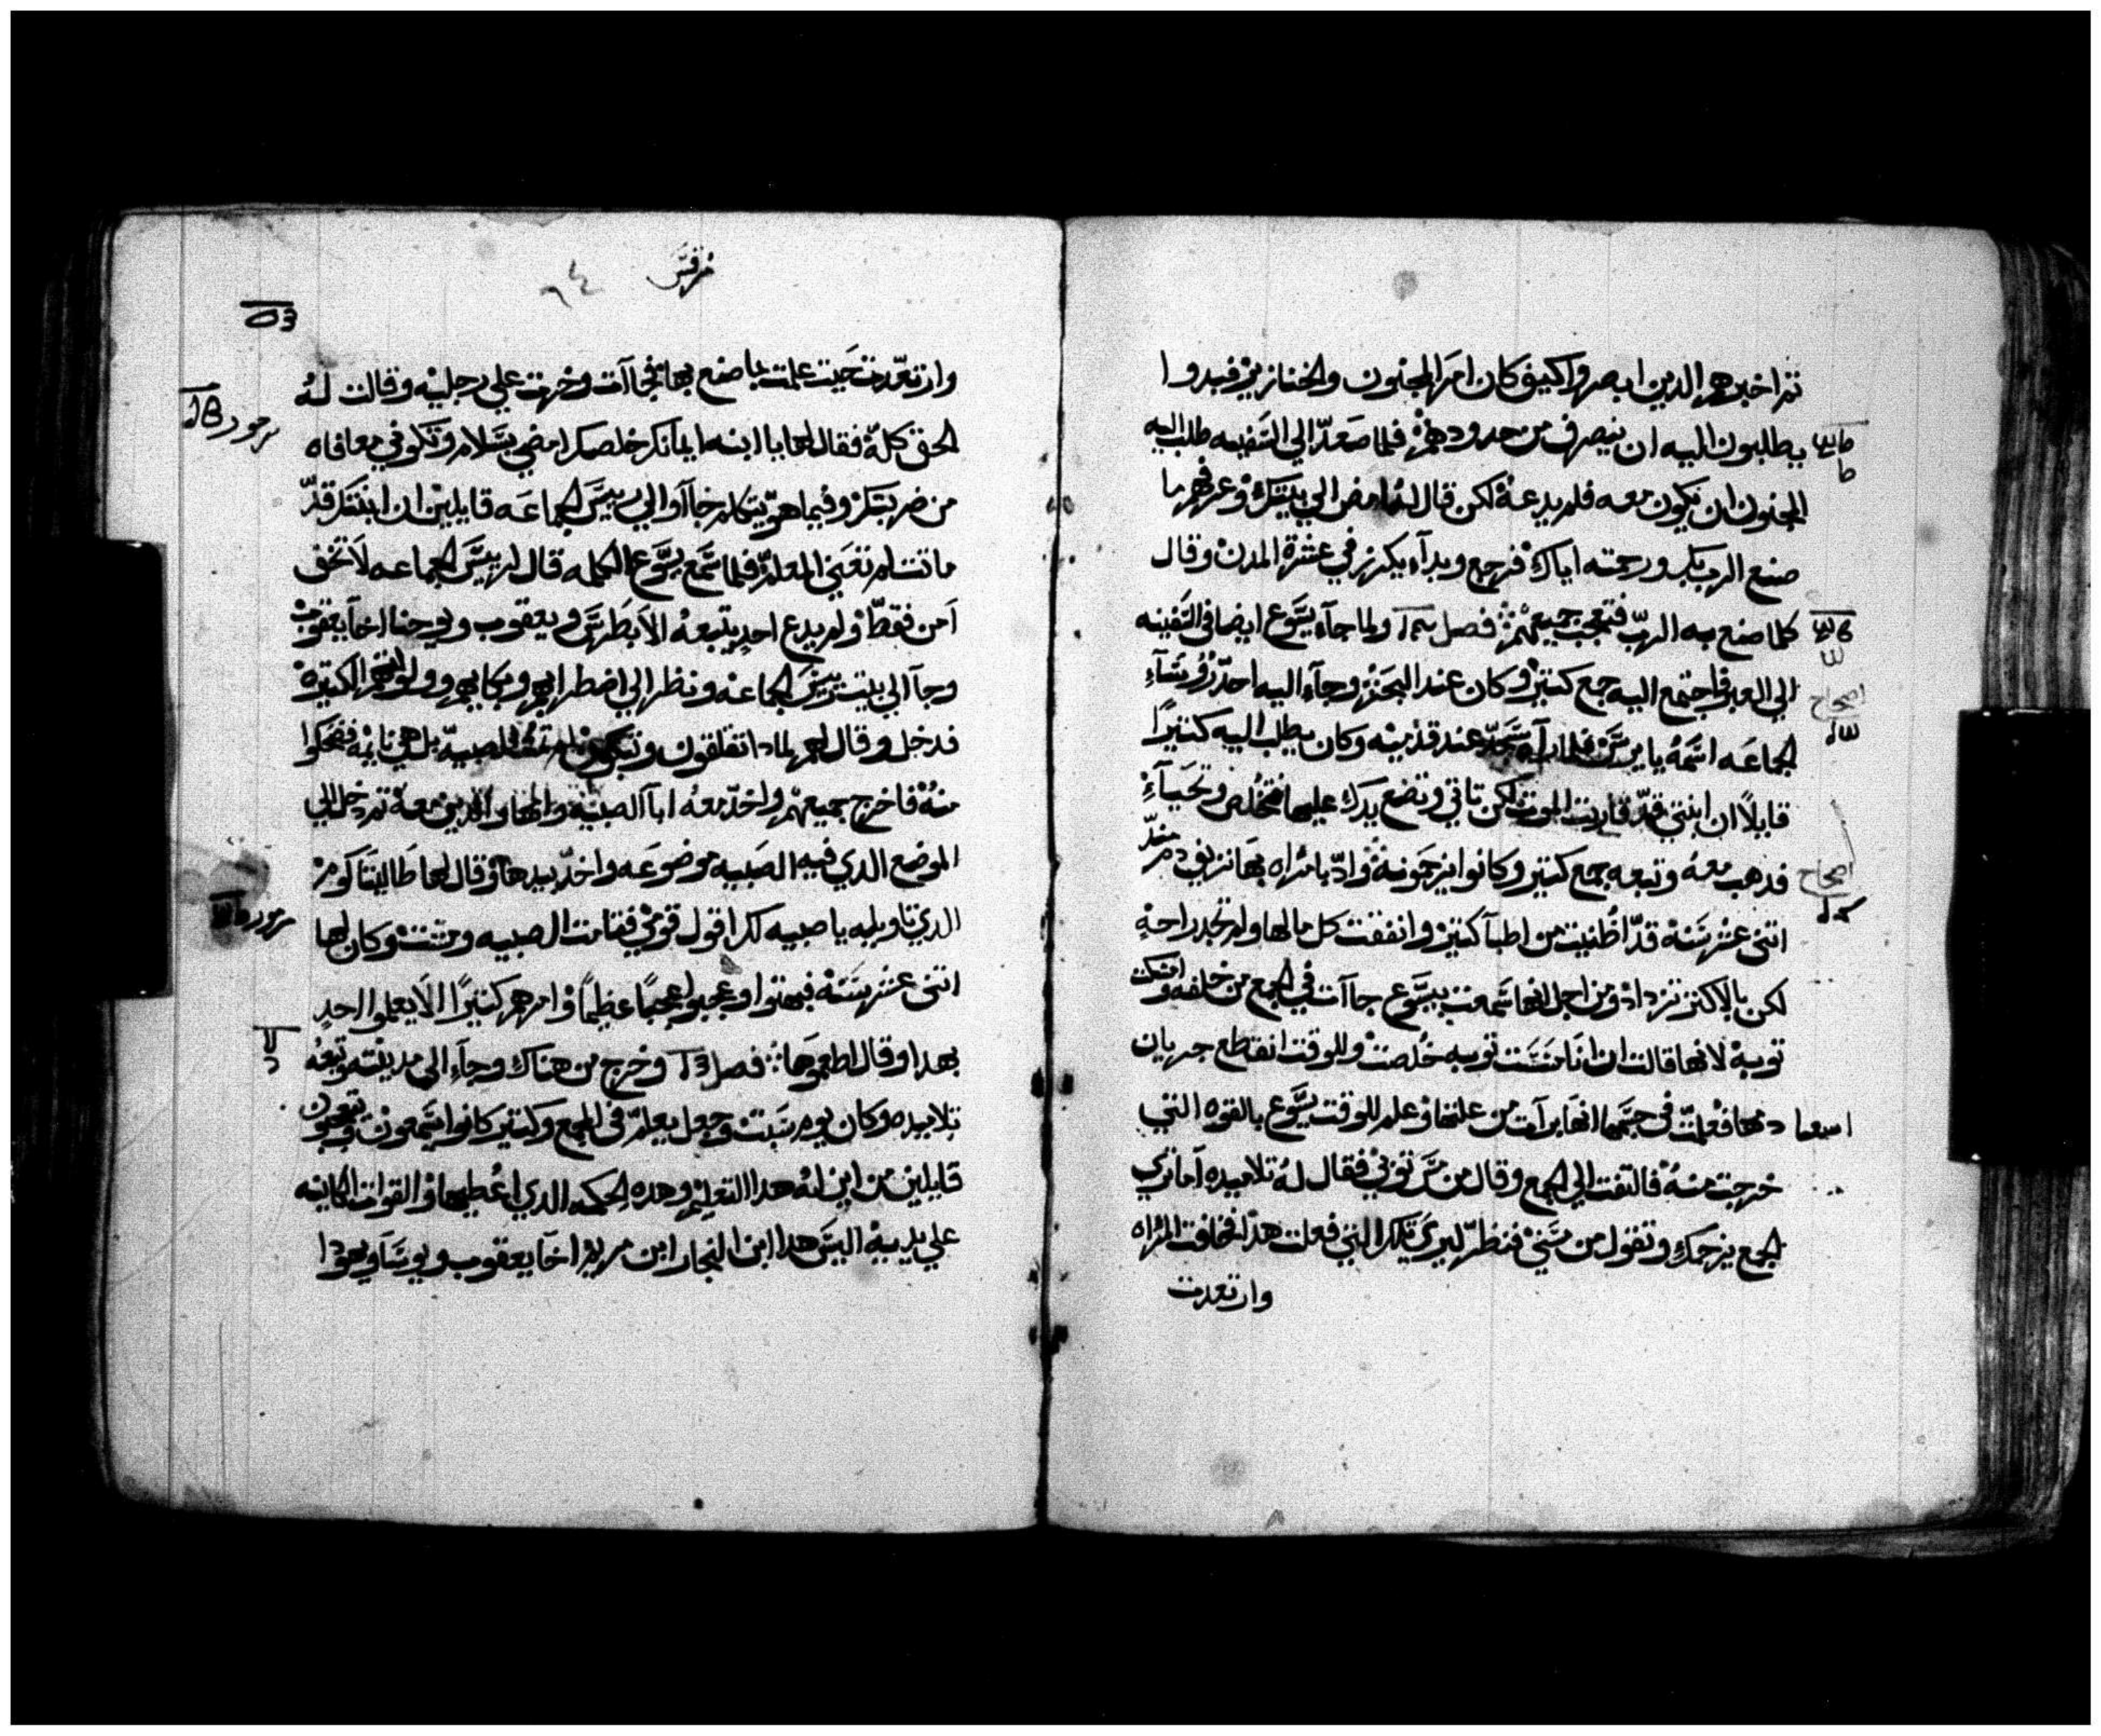 ثم اخبرهم الدين ابصروا كيف كان امر المجنون والخنازير فبدوا
يطلبون اليه ان ينصرف من حدودهم فلما صعد الي السفينه طلب اليه
المجنون ان يكون معه فلم يدعه لكن قال له امض الي بيتك وعرفهم ما
صنع الرب بك ورحمته اياك فرجع وبدا يكرز في عشرة المدن وقال
كلما صنع به الرب فتعجب جميعهم فصل ولما جاء يسوع ايضا في السفينه
الي العبر فاجتمع اليه جمع كتير وكان عند البحر وجاء اليه احد رووساء
الجماعه اسمه يايرس فلما راه سجد عند قدميه وكان يطلب اليه كتيرا
قايلا ان ابنتي قد قاربت الموت لكن تاتي وتضع يدك عليها فتخلص وتحياء
فدهب معه وتبعه جمع كتير وكانوا يزحمونه وادا بامراه بها نزيف دم مند
اتني عشر سنه قد اظنيت من اطبا كتير وانفقت كل مالها ولم تجد راحه
لكن بالاكتر تزداد ومن اجل انها سمعت بيسوع جاات في الجمع من خلفه وامسكت
توبه لانها قالت ان انا مسست توبه خلصت وللوقت انقطع جريان
دمها فعلمت في جسمها انها برات من علتها وعلم للوقت يسوع بالقوه التي
خرجت منه فالتفت الي الجمع وقال من مس توبي فقال له تلاميده اما تري
الجمع يزحمك وتقول من مسني فنظر ليري تلك التي فعلت هدا فخافت المراه
وارتعدت
اصحاح
اصحاح
مرقس
٦٤
وارتعدت حيت علمت بما صنع بها فجاات وخرت علي رجليه وقالت له
الحق كله فقال لها يا ابنه ايمانك خلصك امضي بسلام وتكوني معافاه
من ضربتك وفيما هو يتكلم جااوا الي رييس الجماعه قايلين ان ابنتك قد
ماتت لم تعني المعلم فلما سمع يسوع الكلمه قال لرييس الجماعه لا تخف
امن فقط ولم يدع احد يتبعه الا بطرس ويعقوب ويوحنا اخا يعقوب
وجا الي بيت رييس الجماعه ونظر الي اضطرابهم وبكايهم وولولتهم الكتيره
فدخل وقال لهم لمادا تقلقون وتبكون لم تمت الصبيه بل هي نايمه فضحكوا
منه فاخرج جميعهم واخد معه ابا الصبيه وامها والدين معه تم دخل الي
الموضع الدي فيه الصبيه موضوعه واخد بيدها وقال لها طاليتا كومر
الدي تاويله يا صبيه لك اقول قومي فقامت الصبيه ومشت وكان لها
اتني عشر سنه فبهتوا وعجبوا عجبا عظيما وامرهم كتيرا الا يعلموا احد
بهدا وقال اطعموها فصل وخرج من هناك وجاء الي مدينته وتبعه
تلاميده وكان يوم سبت وجعل يعلم في المجمع وكتير كانوا يسمعون ويتعجبون
قايلين من اين له هدا التعليم وهده الحكمه الدي اعطيها والقوات الكاينه
علي يديه اليس هدا ابن النجار ابن مريم اخا يعقوب ويوسا ويهودا